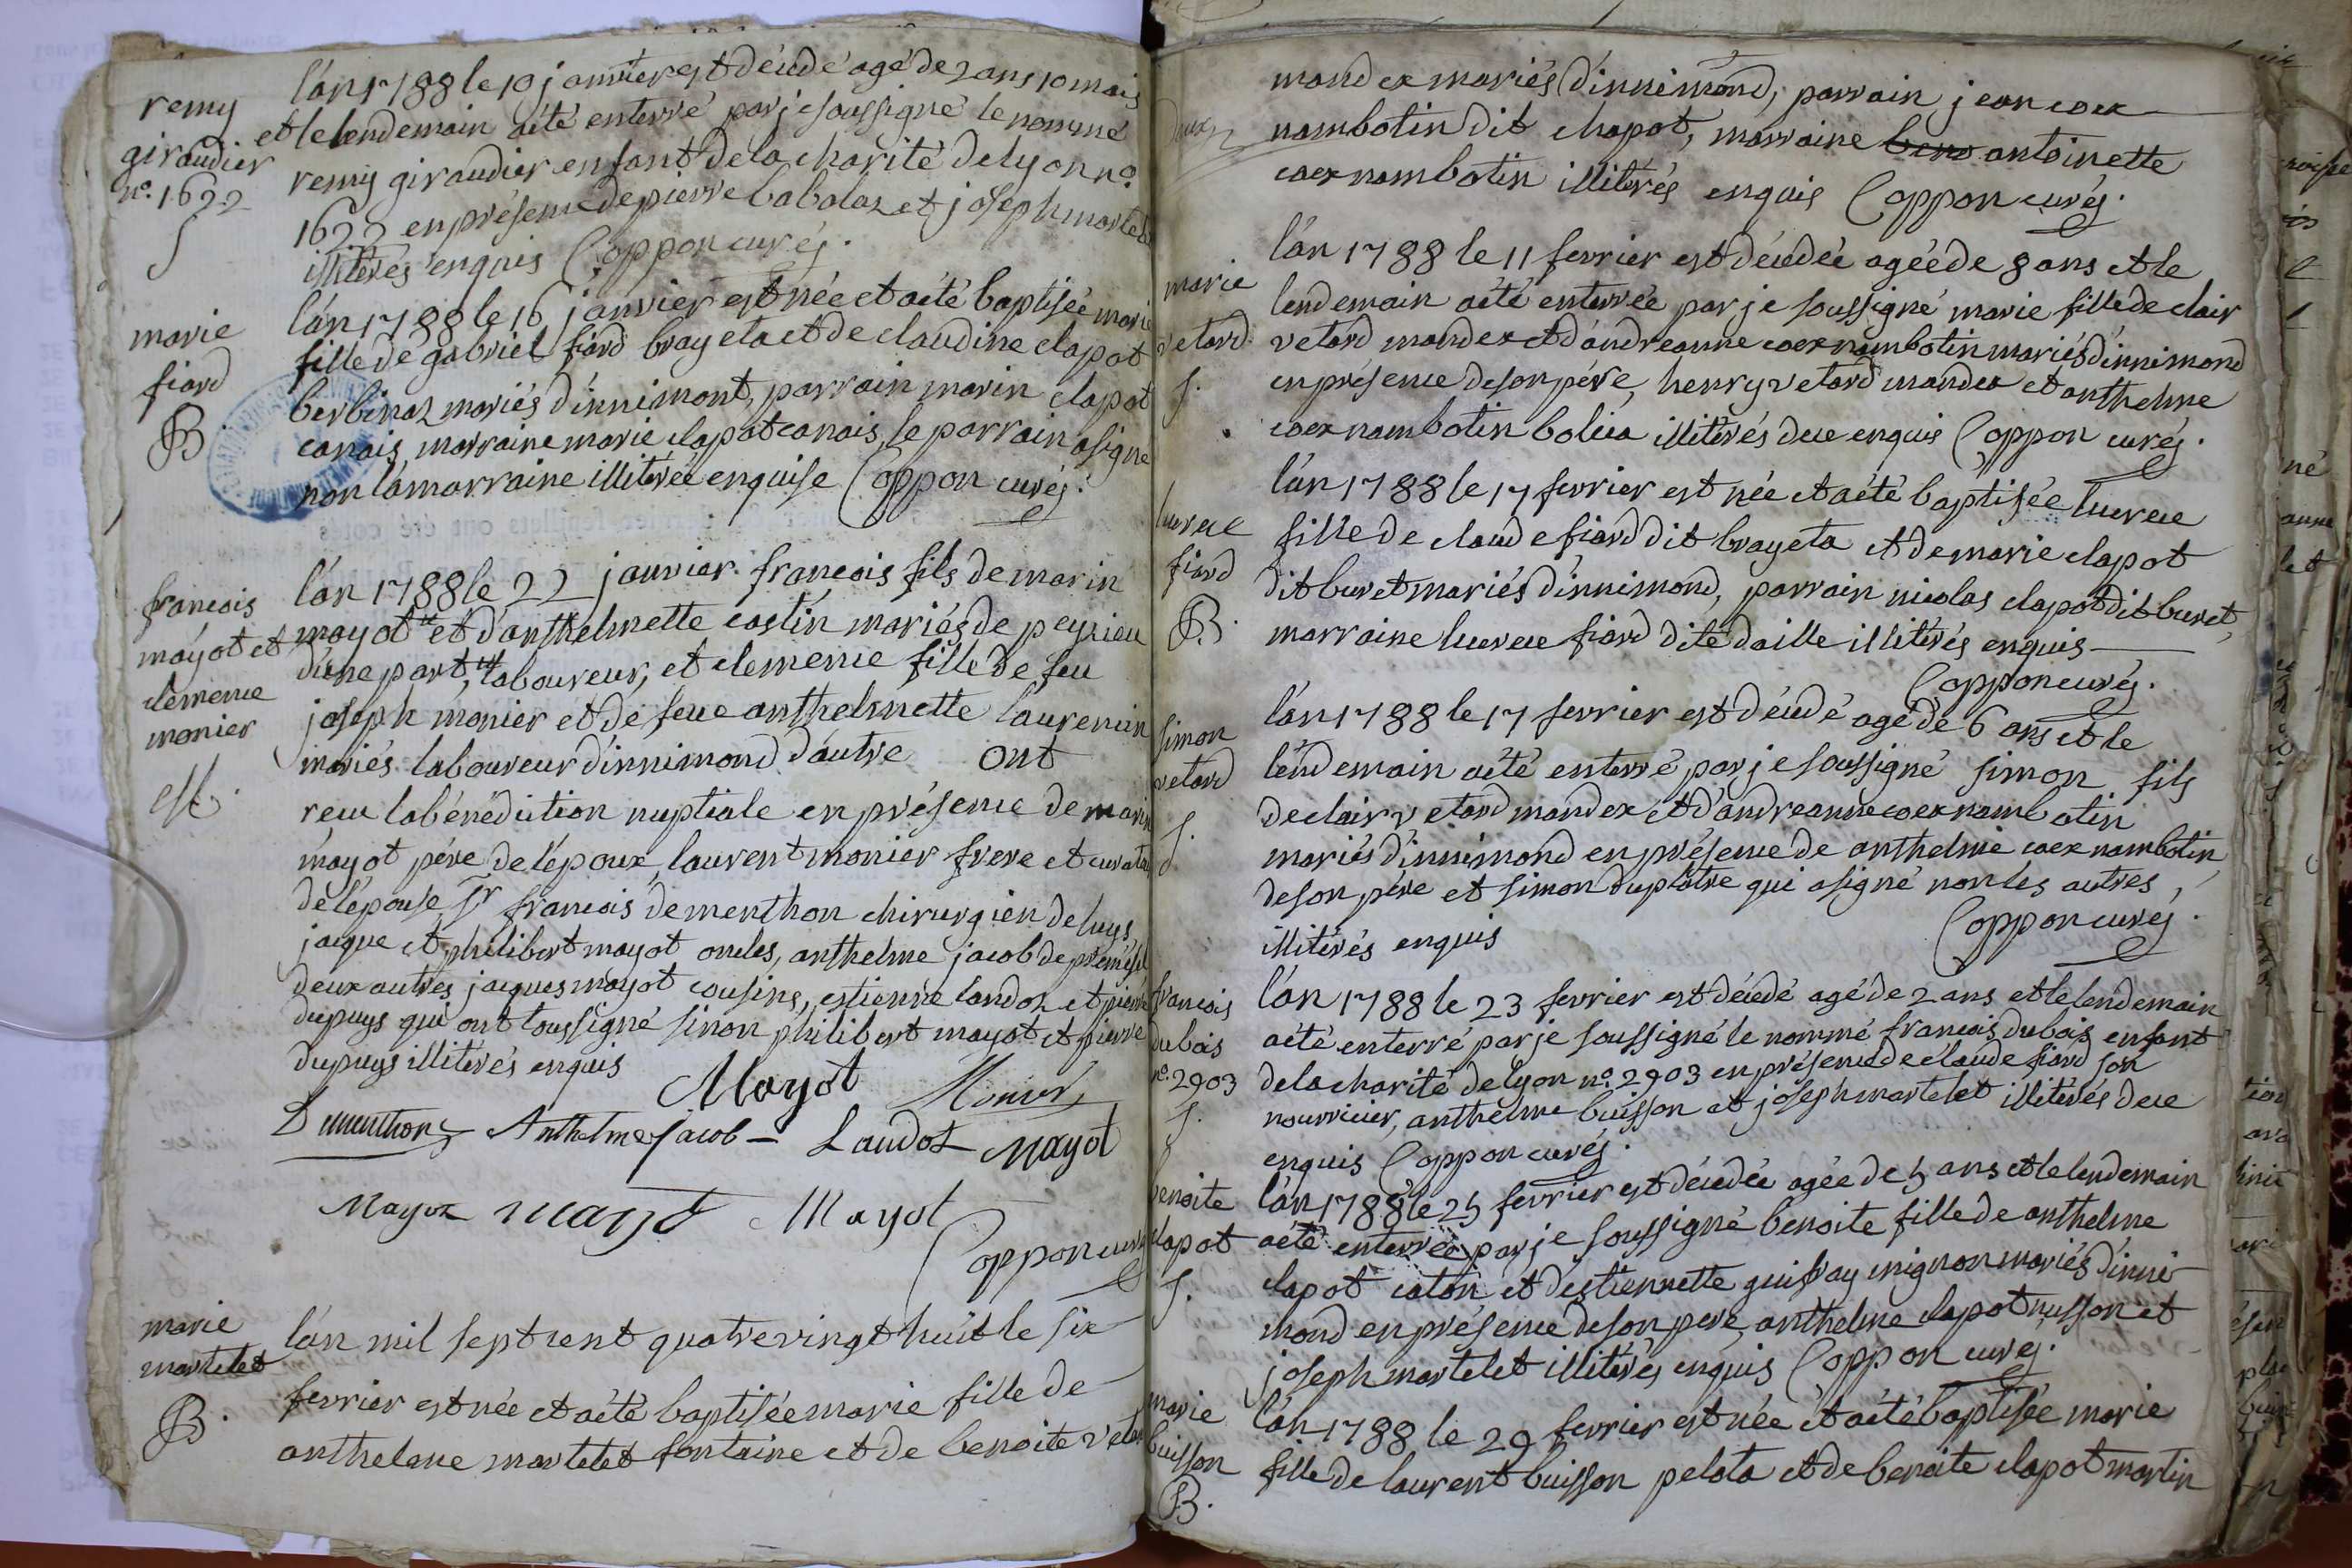 remy
giraudier
n.º 1622
S
l'án 1788 le 10 janvier est décédé agé de 2 ans 10 mois
et le lendemain aété enterré par je soussigné le nommé
remy giraudier enfant de la charité de lyon n.º
1622 en présence de pierre babolaz et joseph martelet
illitérés enquis Coppon curé j.
marie
fiard
B.
l'án 1788 le 16 janvier est née et aété baptisée marie
fille de gabriel fiard brayeta et de claudine clapot
berbinaz mariés d'innimont, parrain marin clapot
canais, marraine marie clapot canais, le parrain asigné
non lámarraine illitérée enquise Coppon curé j.
francois
mayot et
clemence
monier
M.
l'án 1788 le 22 janvier francois fils de marin
mayot et d'anthelmette costin mariés de peyrieu
d'une part, laboureur, et clemence fille de feu
joseph monier et de feue anthelmette laurencin
mariés laboureur d'innimond d'autre ont
recu labénédiction nuptiale en présence de marin
mayot pére de l'époux, laurent monier frere et curateur
de l'épouse, Sr francois dementhon chirurgien de luys,
jacque et philibert mayot oncles, anthelme jacob de prémésel
deux autres jacques mayot cousins, estienne landoz et pierre
dupuys qui ont soussigné sinon philibert mayot et pierre
dupuys illitérés enquis
Mayot Monier
Dementhon Anthelme jacob Landoz Mayot
Mayot mayot Mayot
Coppon curé
marie
martelet
B.
l'án mil sept cent quatrevingt huit le six
fevrier est née et aété baptisée marie fille de
anthelme martelet fontaine et de benoite vetard
mandex mariés d'innimond, parrain jean coex
nambotin dit chapot, marraine antoinette
coex nambotin illitérés enquis Coppon curé j.
marie
vetard
S.
l'án 1788 le 11 fevrier est décédée agée de 8 ans et le
lendemain aété enterrée par je soussigné marie fille de clair
vetard mandex et d'andreanne coex nambotin mariés d'innimond
en présence de son pére, henry vetard mandex et anthelme
coex nambotin bolica illitérés de ce enquis Coppon curé j.
lucrece
fiard
B.
l'án 1788 le 17 fevrier est née et aété baptisée lucrece
fille de claude fiard dit brayeta et de marie clapot
dit buret mariés d'innimond, parrain nicolas clapot dit buret,
marraine lucrece fiard dite daille illitérés enquis
Coppon curé j.
simon
vetard
S.
l'án 1788 le 17 fevrier est décédé agé de 6 ans et le
lendemain aété enterré par je soussigné simon fils
de clair vetard mandex et d'andreanne coex nambotin
mariés d'innimond en présence de anthelme coex nambotin,
de son pére et simon duplatre qui asigné non les autres,
illitérés enquis Coppon curé j.
francois
dubois
n.º 2903
S.
l'án 1788 le 23 fevrier est décédé agé de 2 ans et le lendemain
aété enterré par je soussigné le nommé francois dubois enfant
de la charité de lyon n.º 2903 en présence de claude fiard son
nourricier, anthelme buisson et joseph martelet illitérés de ce
enquis Coppon curé j.
benoite
clapot
S.
l'án 1788 le 25 fevrier est décédée agée de 5 ans et le lendemain
aété enterrée par je soussigné benoite fille de anthelme
clapot caton et d'estiennette guifray mignon mariés d'inni-
mond en présence de son pere, anthelme clapot musson et
joseph martelet illitérés enquis Coppon curé j.
marie
buisson
B.
l'án 1788 le 29 fevrier est née et aété baptisée marie
fille de laurent buisson pelota et de benoite clapot martin